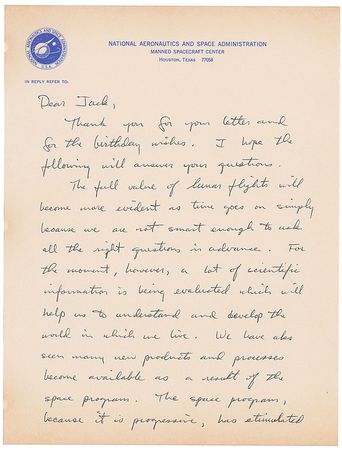 NATIONAL AERONAUTICS AND SPACE ADMINISTRATION
MANNED SPACECRAFT CENTER
HOUSTON, TEXAS 77058
IN REPLY REFER TO:
Dear Jack,
Thank you for your letter and
for the birthday wishes. I hope the
following will answer your questions.
The full value of lunar flights will
become more evident as time goes on simply
because we are not smart enough to ask
all the right questions in advance. For
the moment, however, a lot of scientific
information is being evaluated which will
help us to understand and develop the
world in which we live. We have also
seen many new products and processes
become available as a result of the
space program. The space program,
because it is progressive, has stimulated